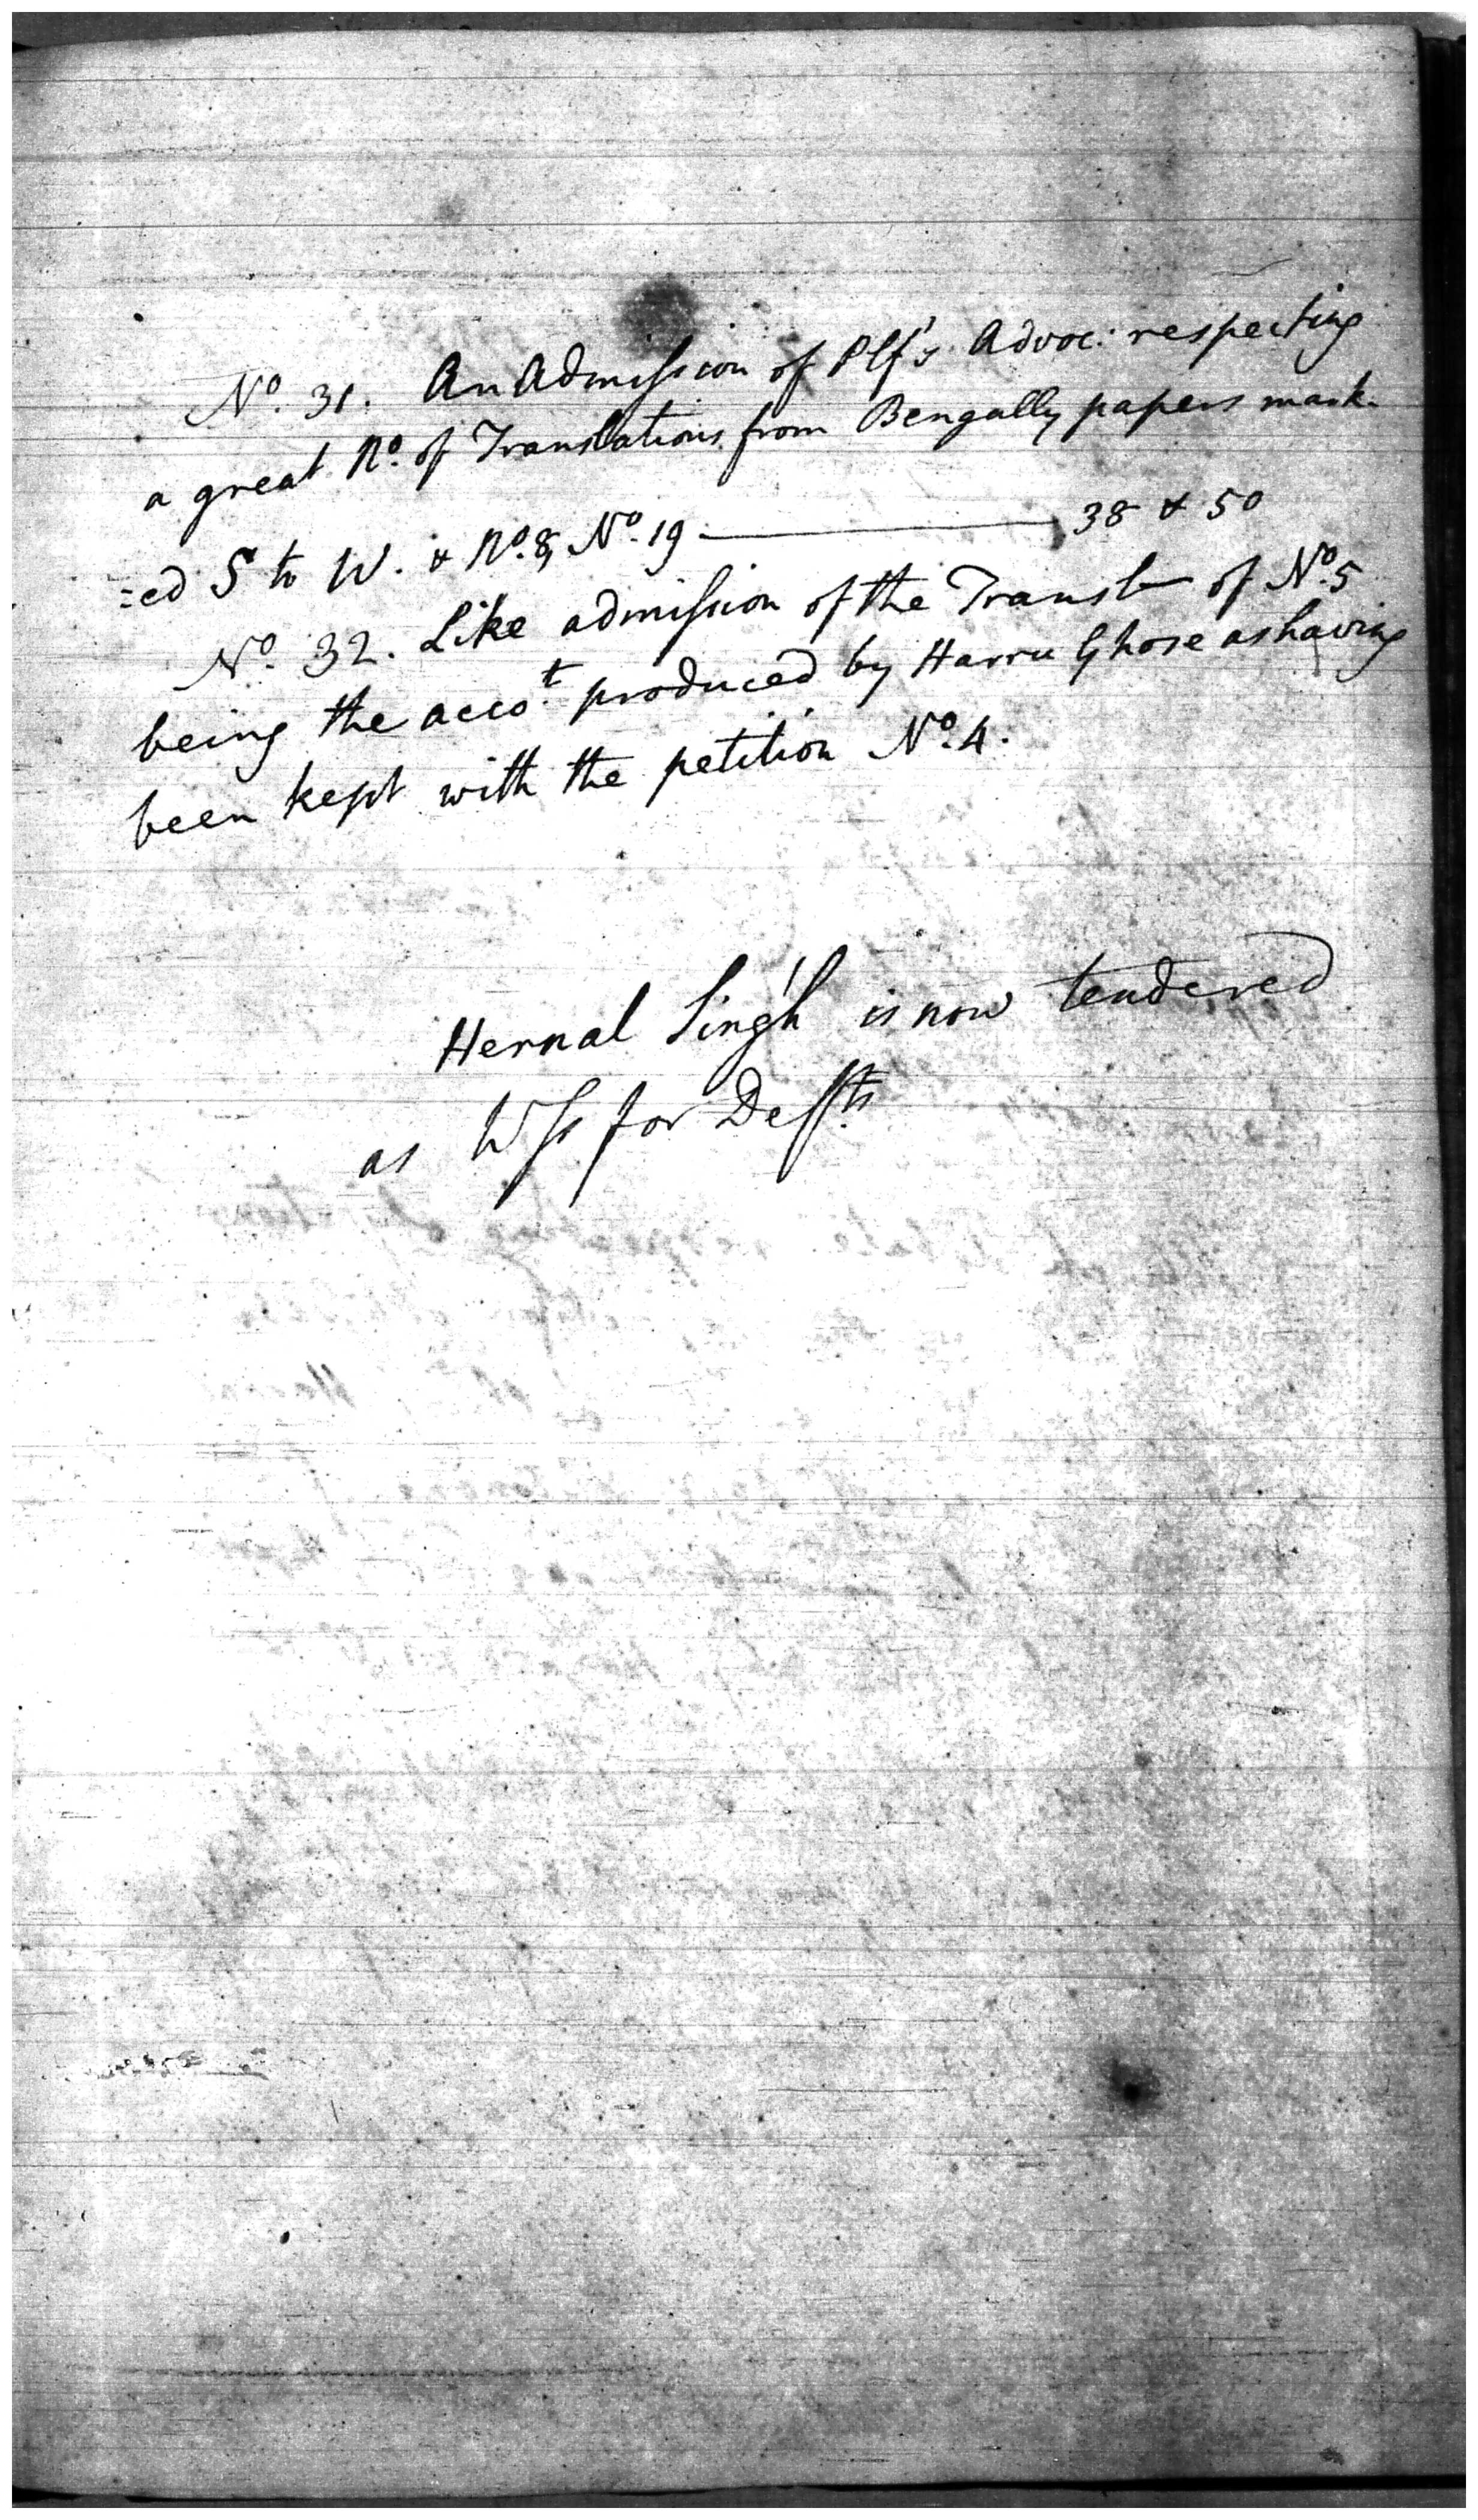 No. 31. An Admission of Plf's Advoc: respecting
a great No. of Translations from Bengally papers mark-
=ed S to W. & No. 8, No. 19 — 38 & 50
No. 32. Like admission of the Transl of No. 5
being the acco.t produced by Harru Ghose as having
been kept with the petition No. 4.
Hernal Singh is now tendered
as Wss for Defts